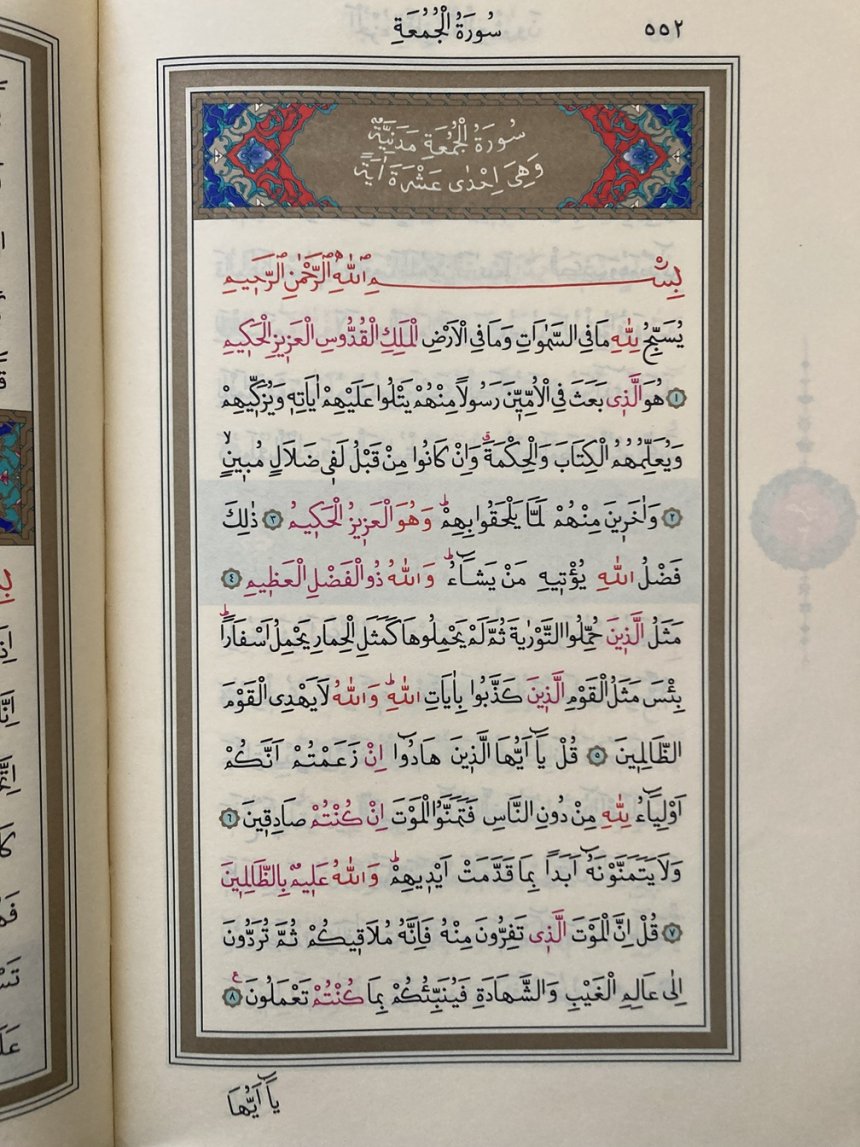 سُورَةُ الْجُمُعَةِ
٥٥٢
سُورَةُ الْجُمُعَةِ مَدَنِيَّةٌ
وَهِىَ اِحْدٰى عَشْرَةَ اٰيَةً
بِسْمِ اللّٰهِ الرَّحْمٰنِ الرَّحٖيمِ
يُسَبِّحُ لِلّٰهِ مَا فِى السَّمٰوَاتِ وَمَا فِى الْاَرْضِ الْمَلِكِ الْقُدُّوسِ الْعَزٖيزِ الْحَكٖيمِ
﴿١﴾ هُوَ الَّذٖى بَعَثَ فِى الْاُمِّيّٖنَ رَسُولًا مِنْهُمْ يَتْلُوا عَلَيْهِمْ اٰيَاتِهٖ وَيُزَكّٖيهِمْ
وَيُعَلِّمُهُمُ الْكِتَابَ وَالْحِكْمَةَࣗ وَاِنْ كَانُوا مِنْ قَبْلُ لَفٖى ضَلَالٍ مُبٖينٍۙ
﴿٢﴾ وَاٰخَرٖينَ مِنْهُمْ لَمَّا يَلْحَقُوا بِهِمْؕ وَهُوَ الْعَزٖيزُ الْحَكٖيمُ ﴿٣﴾ ذٰلِكَ
فَضْلُ اللّٰهِ يُؤْتٖيهِ مَنْ يَشَٓاءُؕ وَاللّٰهُ ذُو الْفَضْلِ الْعَظٖيمِ ﴿٤﴾
مَثَلُ الَّذٖينَ حُمِّلُوا التَّوْرٰيةَ ثُمَّ لَمْ يَحْمِلُوهَا كَمَثَلِ الْحِمَارِ يَحْمِلُ اَسْفَارًاؕ
بِئْسَ مَثَلُ الْقَوْمِ الَّذٖينَ كَذَّبُوا بِاٰيَاتِ اللّٰهِؕ وَاللّٰهُ لَا يَهْدِى الْقَوْمَ
الظَّالِمٖينَ ﴿٥﴾ قُلْ يَٓا اَيُّهَا الَّذٖينَ هَادُٓوا اِنْ زَعَمْتُمْ اَنَّكُمْ
اَوْلِيَٓاءُ لِلّٰهِ مِنْ دُونِ النَّاسِ فَتَمَنَّوُا الْمَوْتَ اِنْ كُنْتُمْ صَادِقٖينَ ﴿٦﴾
وَلَا يَتَمَنَّوْنَهُٓ اَبَدًا بِمَا قَدَّمَتْ اَيْدٖيهِمْؕ وَاللّٰهُ عَلٖيمٌ بِالظَّالِمٖينَ
﴿٧﴾ قُلْ اِنَّ الْمَوْتَ الَّذٖى تَفِرُّونَ مِنْهُ فَاِنَّهُ مُلَاقٖيكُمْ ثُمَّ تُرَدُّونَ
اِلٰى عَالِمِ الْغَيْبِ وَالشَّهَادَةِ فَيُنَبِّئُكُمْ بِمَا كُنْتُمْ تَعْمَلُونَࣖ ﴿٨﴾
يَٓا اَيُّهَا